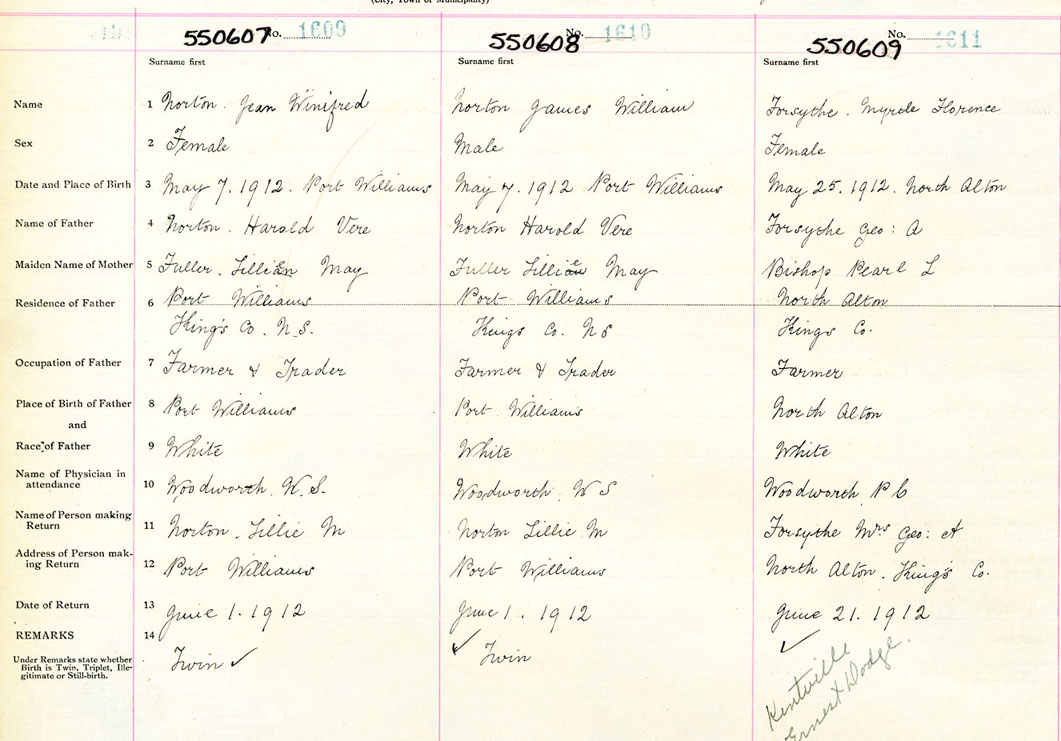 (City, Town or Municipality)
550607 No. 1609
550608 No. 1610
550609 No. 1611
Surname first Surname first Surname first
Name 1 Norton. Jean Winifred Norton James William Forsythe. Myrtle Florence
Sex 2 Female Male Female
Date and Place of Birth 3 May 7. 1912. Port Williams May 7. 1912 Port Williams May 25. 1912. North Alton
Name of Father 4 Norton. Harold Vere Norton Harold Vere Forsythe Geo: A
Maiden Name of Mother 5 Fuller. Lillian May Fuller Lillian May Bishop Pearl L
Residence of Father 6 Port Williams Port Williams North Alton
King's Co. N.S. Kings Co. N S Kings Co.
Occupation of Father 7 Farmer & Trader Farmer & Trader Farmer
Place of Birth of Father 8 Port Williams Port Williams North Alton
and
Race of Father 9 White White White
Name of Physician in
attendance 10 Woodworth. W. S. Woodworth. W S Woodworth P C
Name of Person making
Return 11 Norton. Lillie M Norton Lillie M Forsythe Mrs Geo: A
Address of Person mak-
ing Return 12 Port Williams Port Williams North Alton. King's Co.
Date of Return 13 June 1. 1912 June 1. 1912 June 21. 1912
REMARKS 14
Under Remarks state whether
Birth is Twin, Triplet, Ille-
gitimate or Still-birth.
Twin ✓ ✓ Twin ✓
Kentville
Ernest Dodge.